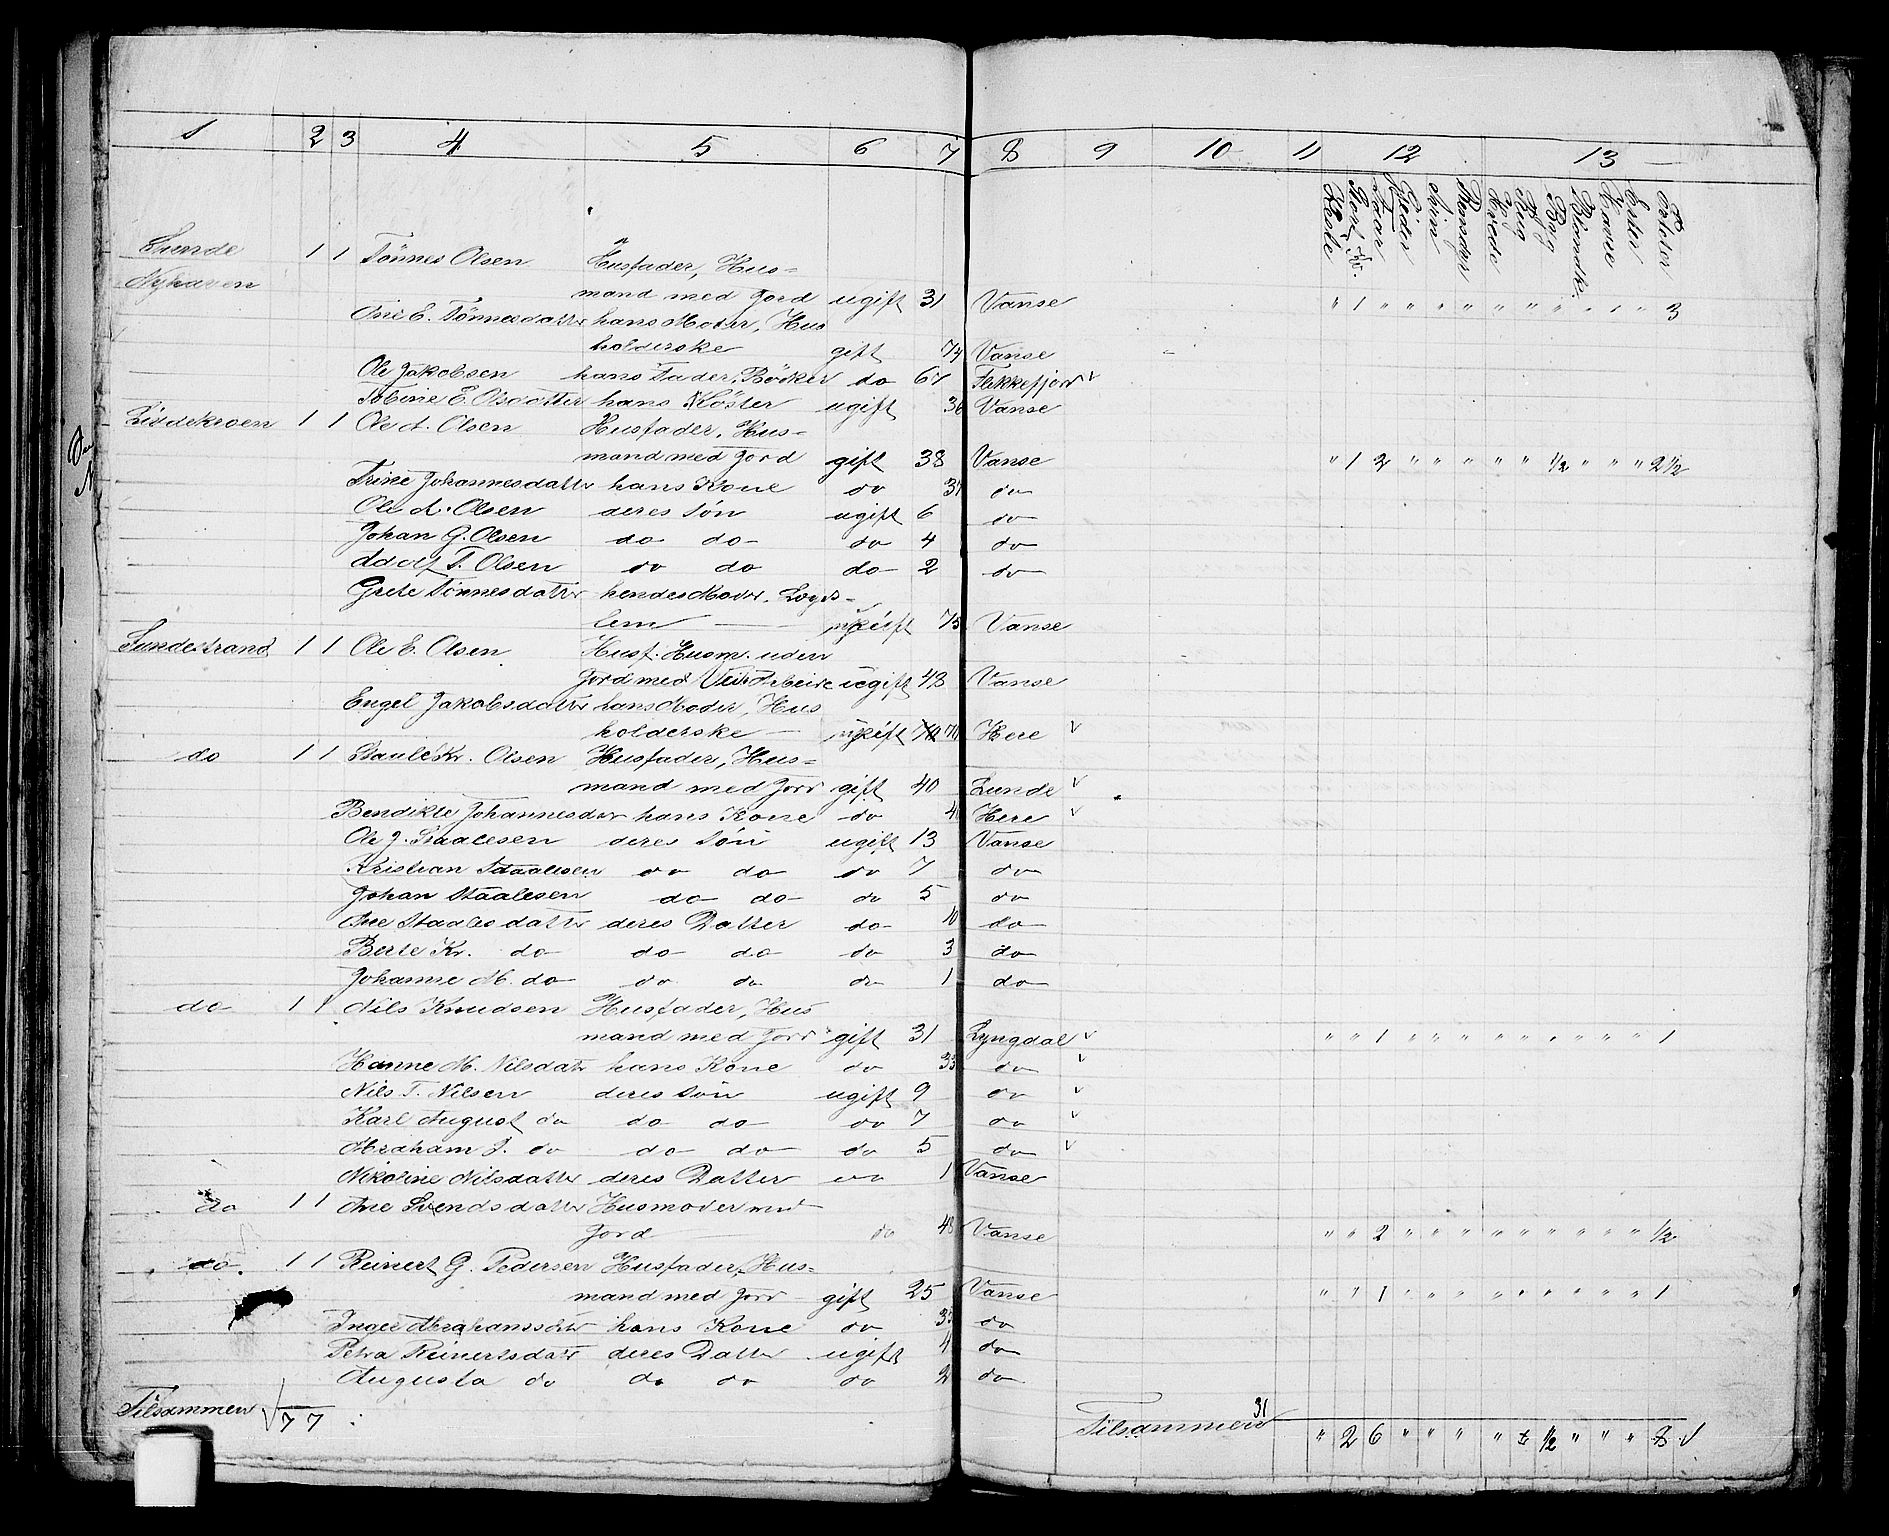 1 2 3 4 5 6 7 8 9 10 11 12 13
Heste Stort Kv. Faar Gjeder Sviin Rensdyr Hvede Rug Byg Blandk. Havre Erter Poteter
Sunde 1 1 Tønnes Olsen Husfader, Hus-
Nyhaven mand med Jord ugift 31 Vanse " 1 " " " " " " " " " " 3
Ane E. Tønnesdatter hans Moder, Hus
holderske gift 74 Vanse
Ole Jakobsen hans Fader, Bødker do 67 Flekkefjord v
Tobine E. Olsdatter hans Søster ugift 36 Vanse
1 1 Ole A. Olsen Husfader, Hus-
mand med Jord gift 38 Vanse " 1 2 " " " " " 1/2 " " " 2 1/2
Trine Johannesdatter hans Kone do 37 do
Ole A. Olsen deres Søn ugift 6 do
Johan G. Olsen do do do 4 do
Adolf T. Olsen do do do 2 do
Grete Tønnesdatter hendes Moder, Logs-
lem 75 Vanse
Sundestrand 1 1 Ole E. Olsen Husf. Husm. uden
Jord med Arbeide ugift 43 Vanse
Engel Jakobsdatter hans Moder, Hus
holderske Here v
do 1 1 Staale Kr. Olsen Husfader, Hus-
mand med Jord gift 40 Lunde v
Bendikte Johannesdatr hans Kone do Here v
Ole J. Staalesen deres Søn ugift 13 Vanse
Kristian Staalesen do do do 7 do
Johan Staalesen do do do 5 do
Ane Staalesdatter deres Datter do 10 do
Berte Kr. do do do do 3 do
Johanne M. do do do do 1 do
do 1 1 Nils Knudsen Husfader, Hus
mand med Jord gift 31 Lyngdal v " " 1 " " " " " " " " " 1
Hanne M. Nilsdatr hans Kone do 33 do v
Nils T. Nilsen deres Søn ugift 9 do v
Karl August do do do do 7 do v
Abraham J. do do do do 5 do v
Nikoline Nilsdatter deres Datter do 1 Vanse
do 1 1 Ane Svendsdatter Husmoder med
Jord do 48 Vanse " " 2 " " " " " " " " " 1/2
do. 1 1 Reinert G. Pedersen Husfader, Hus-
mand med Jord gift 25 Vanse " " 1 " " " " " " " " " 1
Inger Abrahamsdatr hans Kone do do
Petra Reinertsdatr deres Datter ugift 4 do
Augusta do do do do 2 do
Tilsammen √ 7 7 Tilsammen 31 " 2 6 " " " " 1/2 " " " 8 √